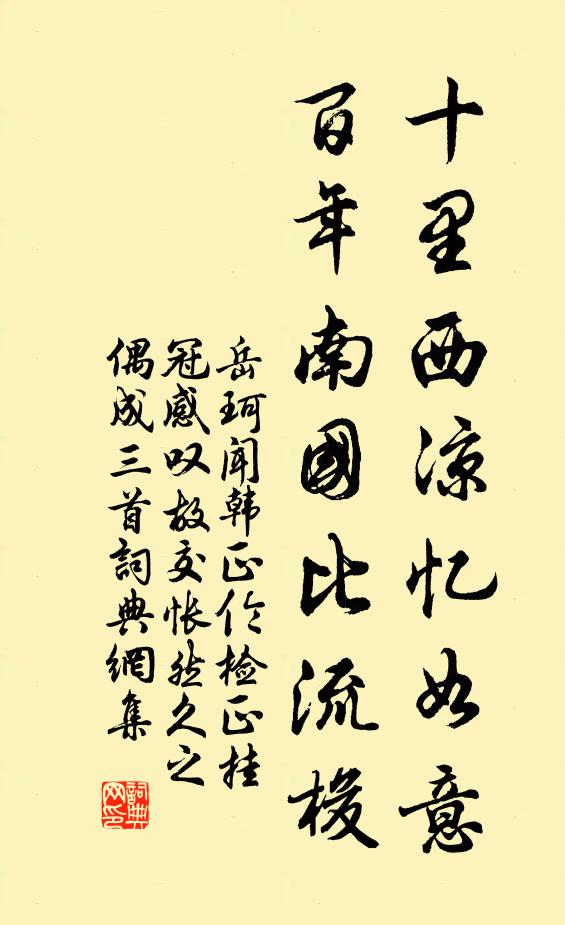 十里西涼忆如意
百年南國比流梭
岳珂闻韩正伦检正挂
冠感叹故交怅然久之
偶成三首詞典網集
詞典
网印